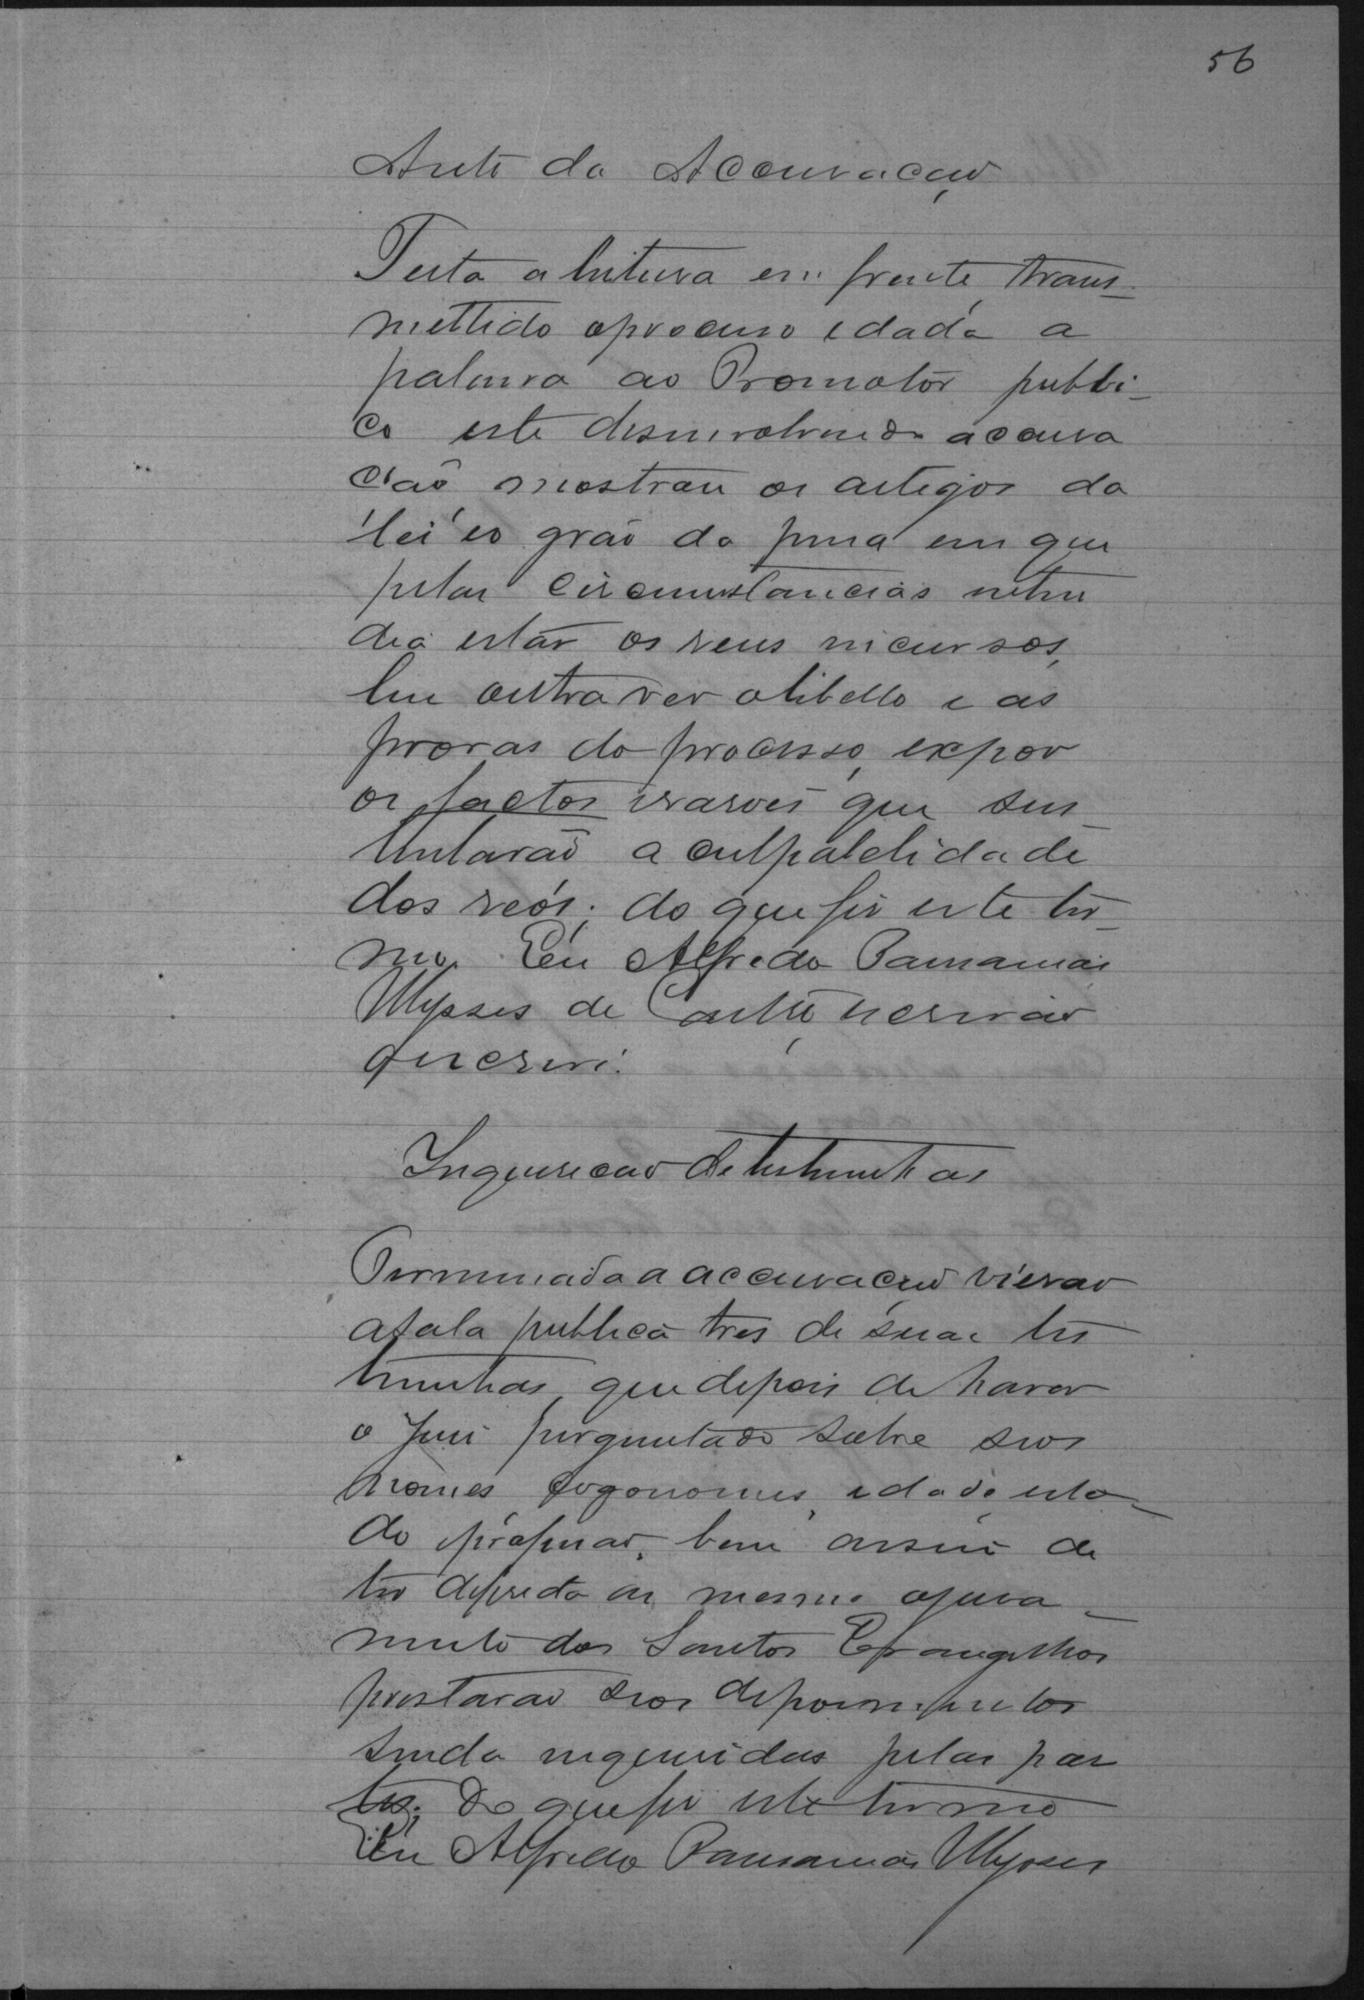 56
Auto da Accusação
Feita a leitura em frente, trans-
mettido o processo e dada a
palavra ao Promotor publi-
co este desenvolvendo a accusa
ção mostrou os artigos da
lei e o gráo da pena em que
pelas circumstancias enten
dia estar os reus incursos,
leu outra vez o libello e as
provas do processo, expoz
os factos rasões que sus
tentavão a culpabilidade
dos reós; do que fiz este ter-
mo. Eu Alfredo Pausanias
Ulysses de Castro, escrivão
que escrevi.
Inquirição de testemunhas
Terminada a accusação vierão
a sala publica tres de suas tes
temunhas, que depois de haver
o Juiz perguntado sobre seos
nomes, cognomes, edade esta-
do profissão, bem assim de
ter deferido as mesmas o jura-
mento dos Santos Evangelhos
prestarão seos depoimentos
sendo inqueridas pelas par
tes; Do que fiz este termo
Eu Alfredo Pausanias Ulysses